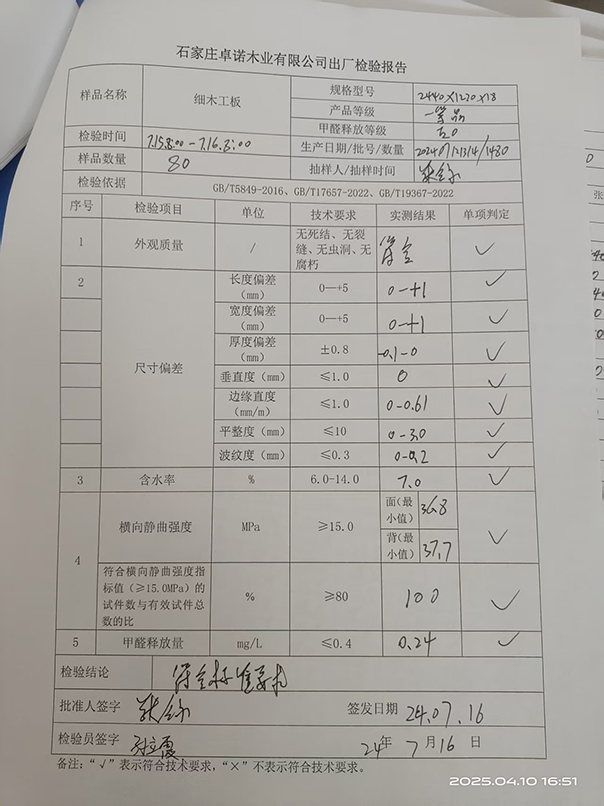 石家庄卓诺木业有限公司出厂检验报告
样品名称 细木工板 规格型号 2440×1220×18
产品等级 一等品
甲醛释放等级 E0
检验时间 7.15.8:00-7.16.8:00 生产日期/批号/数量
样品数量 80 抽样人/抽样时间
检验依据 GB/T5849-2016、GB/T17657-2022、GB/T19367-2022
序号 检验项目 单位 技术要求 实测结果 单项判定
1 外观质量 / 无死结、无裂缝、无虫洞、无腐朽 符合 √
2 尺寸偏差 长度偏差(mm) 0—+5 0-+1 √
宽度偏差(mm) 0—+5 0-+1 √
厚度偏差(mm) ±0.8 -0.1-0 √
垂直度(mm) ≤1.0 0 √
边缘直度(mm/m) ≤1.0 0-0.61 √
平整度(mm) ≤10 0-3.0 √
波纹度(mm) ≤0.3 0-0.2 √
3 含水率 % 6.0-14.0 7.0 √
4 横向静曲强度 MPa ≥15.0 面(最小值) 36.8 √
背(最小值) 37.7
符合横向静曲强度指标值(≥15.0MPa)的试件数与有效试件总数的比 % ≥80 100 √
5 甲醛释放量 mg/L ≤0.4 0.24 √
检验结论 符合标准要求
批准人签字 签发日期 24.07.16
检验员签字 24年7月16日
备注:“√”表示符合技术要求,“×”不表示符合技术要求。
2025.04.10 16:51